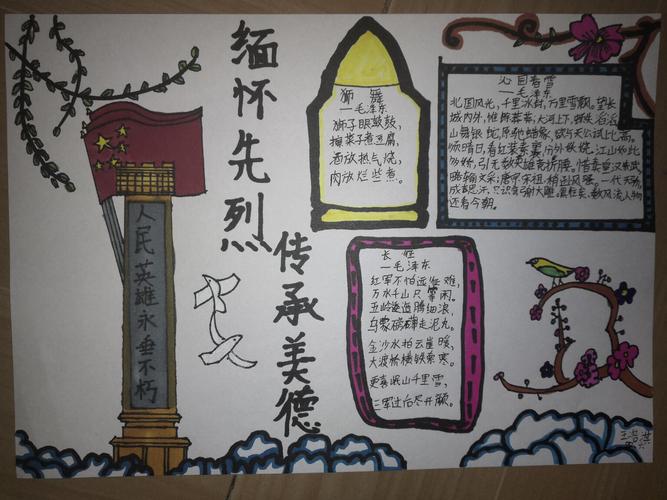 缅怀先烈
传承美德
人民英雄永垂不朽
狮舞
—毛泽东
狮子眼鼓鼓,
擦菜子煮豆腐,
酒放热气烧,
肉放烂些煮。
沁园春雪
—毛泽东
北国风光,千里冰封,万里雪飘。望长
城内外,惟余莽莽,大河上下,顿失滔滔。
山舞银蛇,原驰蜡象,欲与天公试比高。
须晴日,看红装素裹,分外妖娆。江山如此
多娇,引无数英雄竞折腰。惜秦皇汉武
略输文采;唐宗宋祖,稍逊风骚。一代天骄,
成吉思汗,只识弯弓射大雕。俱往矣,数风流人物
还看今朝。
长征
—毛泽东
红军不怕远征难,
万水千山只等闲。
五岭逶迤腾细浪,
乌蒙磅礴走泥丸。
金沙水拍云崖暖,
大渡桥横铁索寒。
更喜岷山千里雪,
三军过后尽开颜。
王浩淇